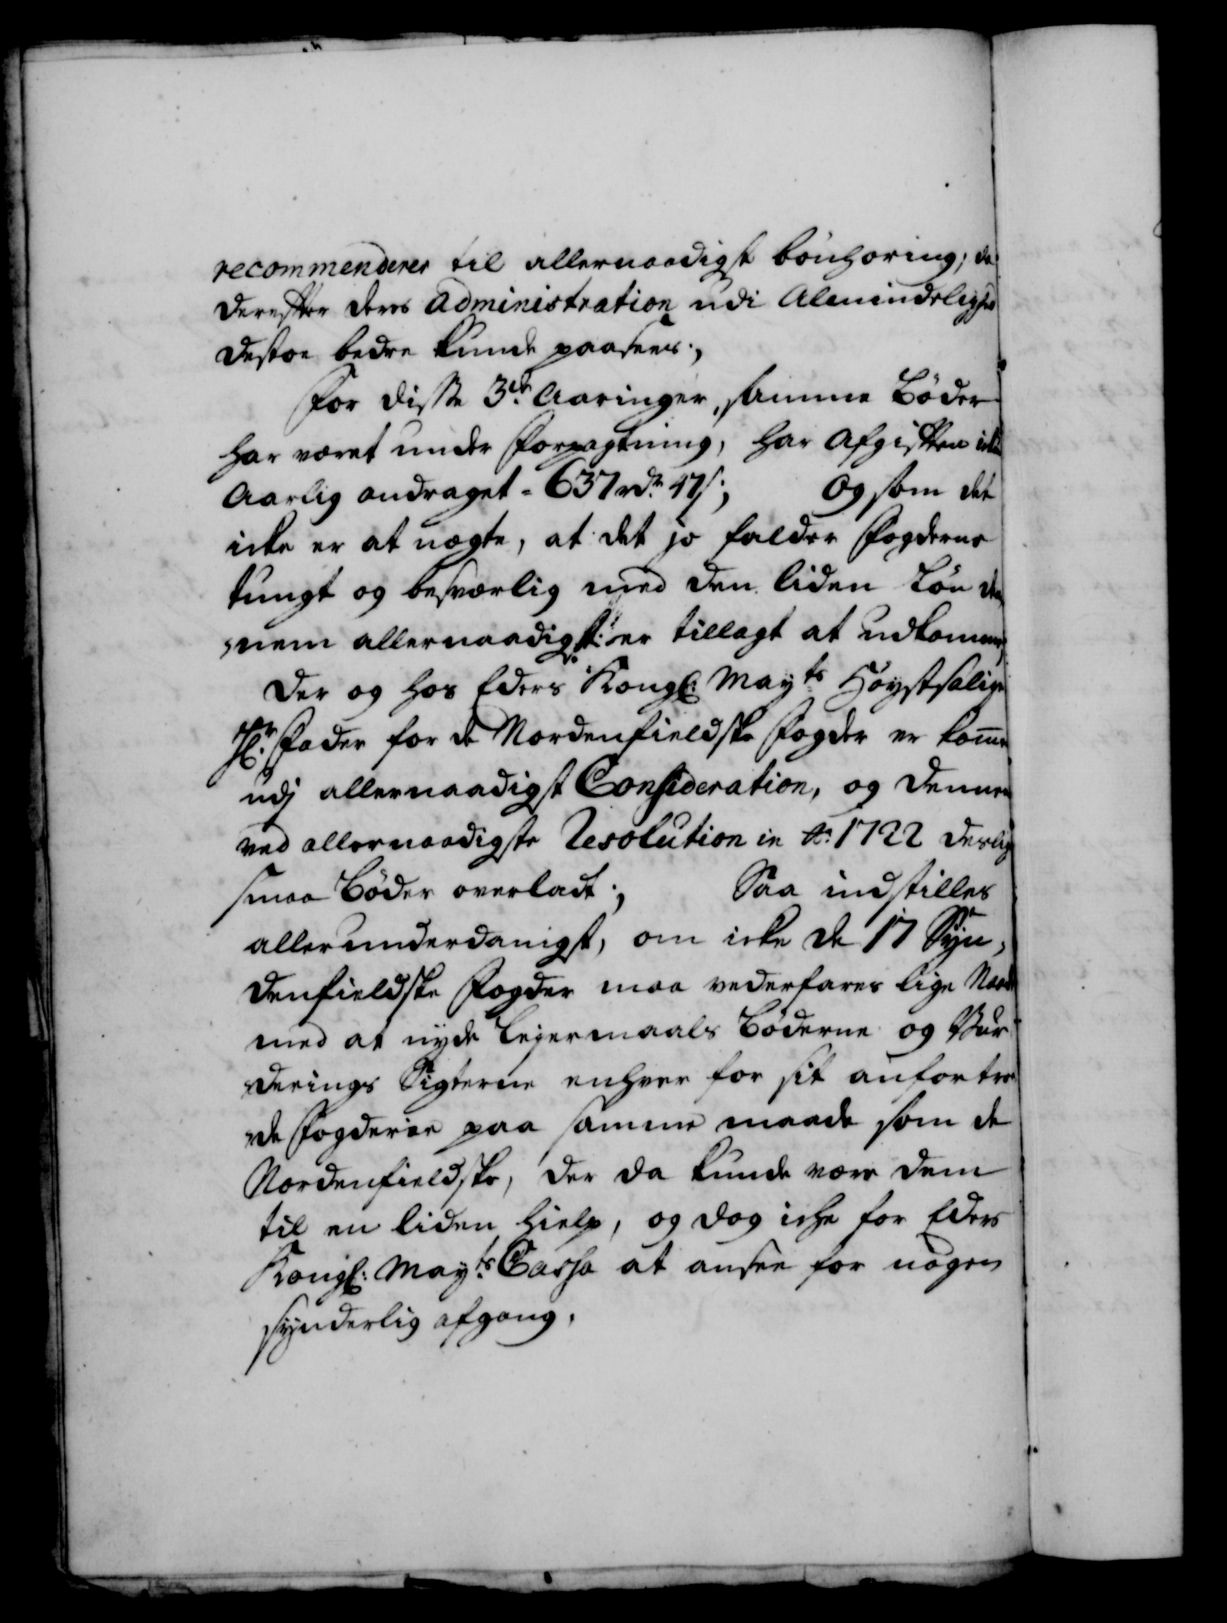 recommenderer til allernaadigst bönhöring, da
derefter deres Administration udi Almindelighed
desto bedre kunde paasees;
For disse 3de Aaringer, samme Böder
har været under Forpagtning, har Afgiften
Aarlig andraget = 637 rdr 47 s;   Og som det
icke er at nægte, at det jo falder Fogderne
tungt og besværlig med den liden Lön
nem allernaadigst: er tillagt at udkomme,
Der og hos Eders Kongl: Mayts Höystsalige
Hr Fader for de Nordenfieldske Fogder er komen
udj allernaadigst Consideration, og dennem
ved allernaadigste Resolution in Ao 1722 deslige
smaa Böder overladt;   Saa indstilles
allerunderdanigst, om icke de 17 Syn,
denfieldske Fogder maa vederfares lige Naade
med at nyde Leyermaals Böderne og Vur
derings Sigterne enhver for sit anfortro
de Fogderie paa samme maade som de
Nordenfieldske, der da kunde være dem
til en liden Hielp, og dog icke for Eders
Kongl: Mayts Cassa at ansee for nogen
synderlig afgang.